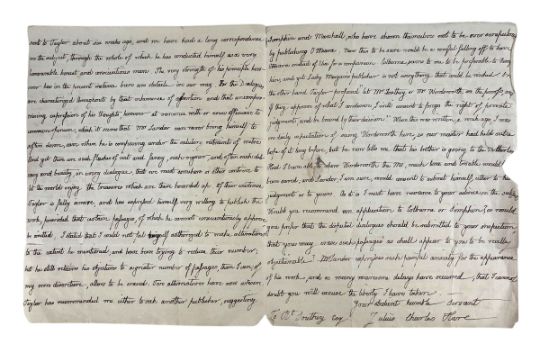 sent to Taylor about six weeks ago, and we have had a long correspondence
on the subject, through the whole of which he has conducted himself as a very
honourable honest and conscientious man. The very strength of his principles however
has in the present instance been an obstacle in our way. For the Dialogues
are characterized throughout by that vehemence of affection and that uncompro-
mising expression of his thoughts, however at variance with or even offensive to
common opinion, which it seems that Mr Landor can never bring himself to
soften down, even when he is conversing under the
And yet there are such flashes of wit and fancy, such vigour, and often such
and beauty, in every dialogue, that we must
let the world enjoy the treasures which are there hoarded up. Of their excellence
Taylor is fully aware, and has expressed himself very willing to publish the
work, provided that certain passages, of which he cannot conscientiously approve
be omitted. I stated that I could not feel myself authorized to make alterations
to the extent he mentioned, and have been trying to reduce their number;
but he still retains his objections to a greater number of passages, than I can, of
my own discretion, allow to be erased. Two alternatives have now arisen.
Taylor has recommended me either to seek another publisher, suggesting
Simpkin and Marshall, who have shewn themselves not to be over scrupulous
by publishing
Colburn would seem to me to be preferable to
him, and yet Lady Morgan's publisher is not anything that could be wished. On
the other hand Taylor proposes to let Mr Southey or Mr Wordsworth see the proofs, and
if they approve of what I condemn, I will consent to forego the right of private
judgement, and be bound by their decision. When this was written, a week ago, I was
in daily expectation of seeing Wordsworth here, so our matter had held
before of it long before, but he now tells me that his brother is going to the
Had I been able to shew Wordsworth the Ms, much time and trouble would
been saved, and Landor, I am sure, would consent to submit himself either to his
judgement or to yours. As it is I must have recourse to your advice on the subject.
Would you recommend an application to Colburn or Simpkin? or would
you prefer that the disputed dialogues should be submitted to your inspection
that you may erase such passages as shall appear to you to be really
objectionable? Mr Landor expresses such painful anxiety for the appearance
of his work, and so many vexatious delays have occurred, that I cannot
doubt you will excuse the liberty I have taken.
Your obedient humble servant
To Rt Southey Esq Julius Charles Hare